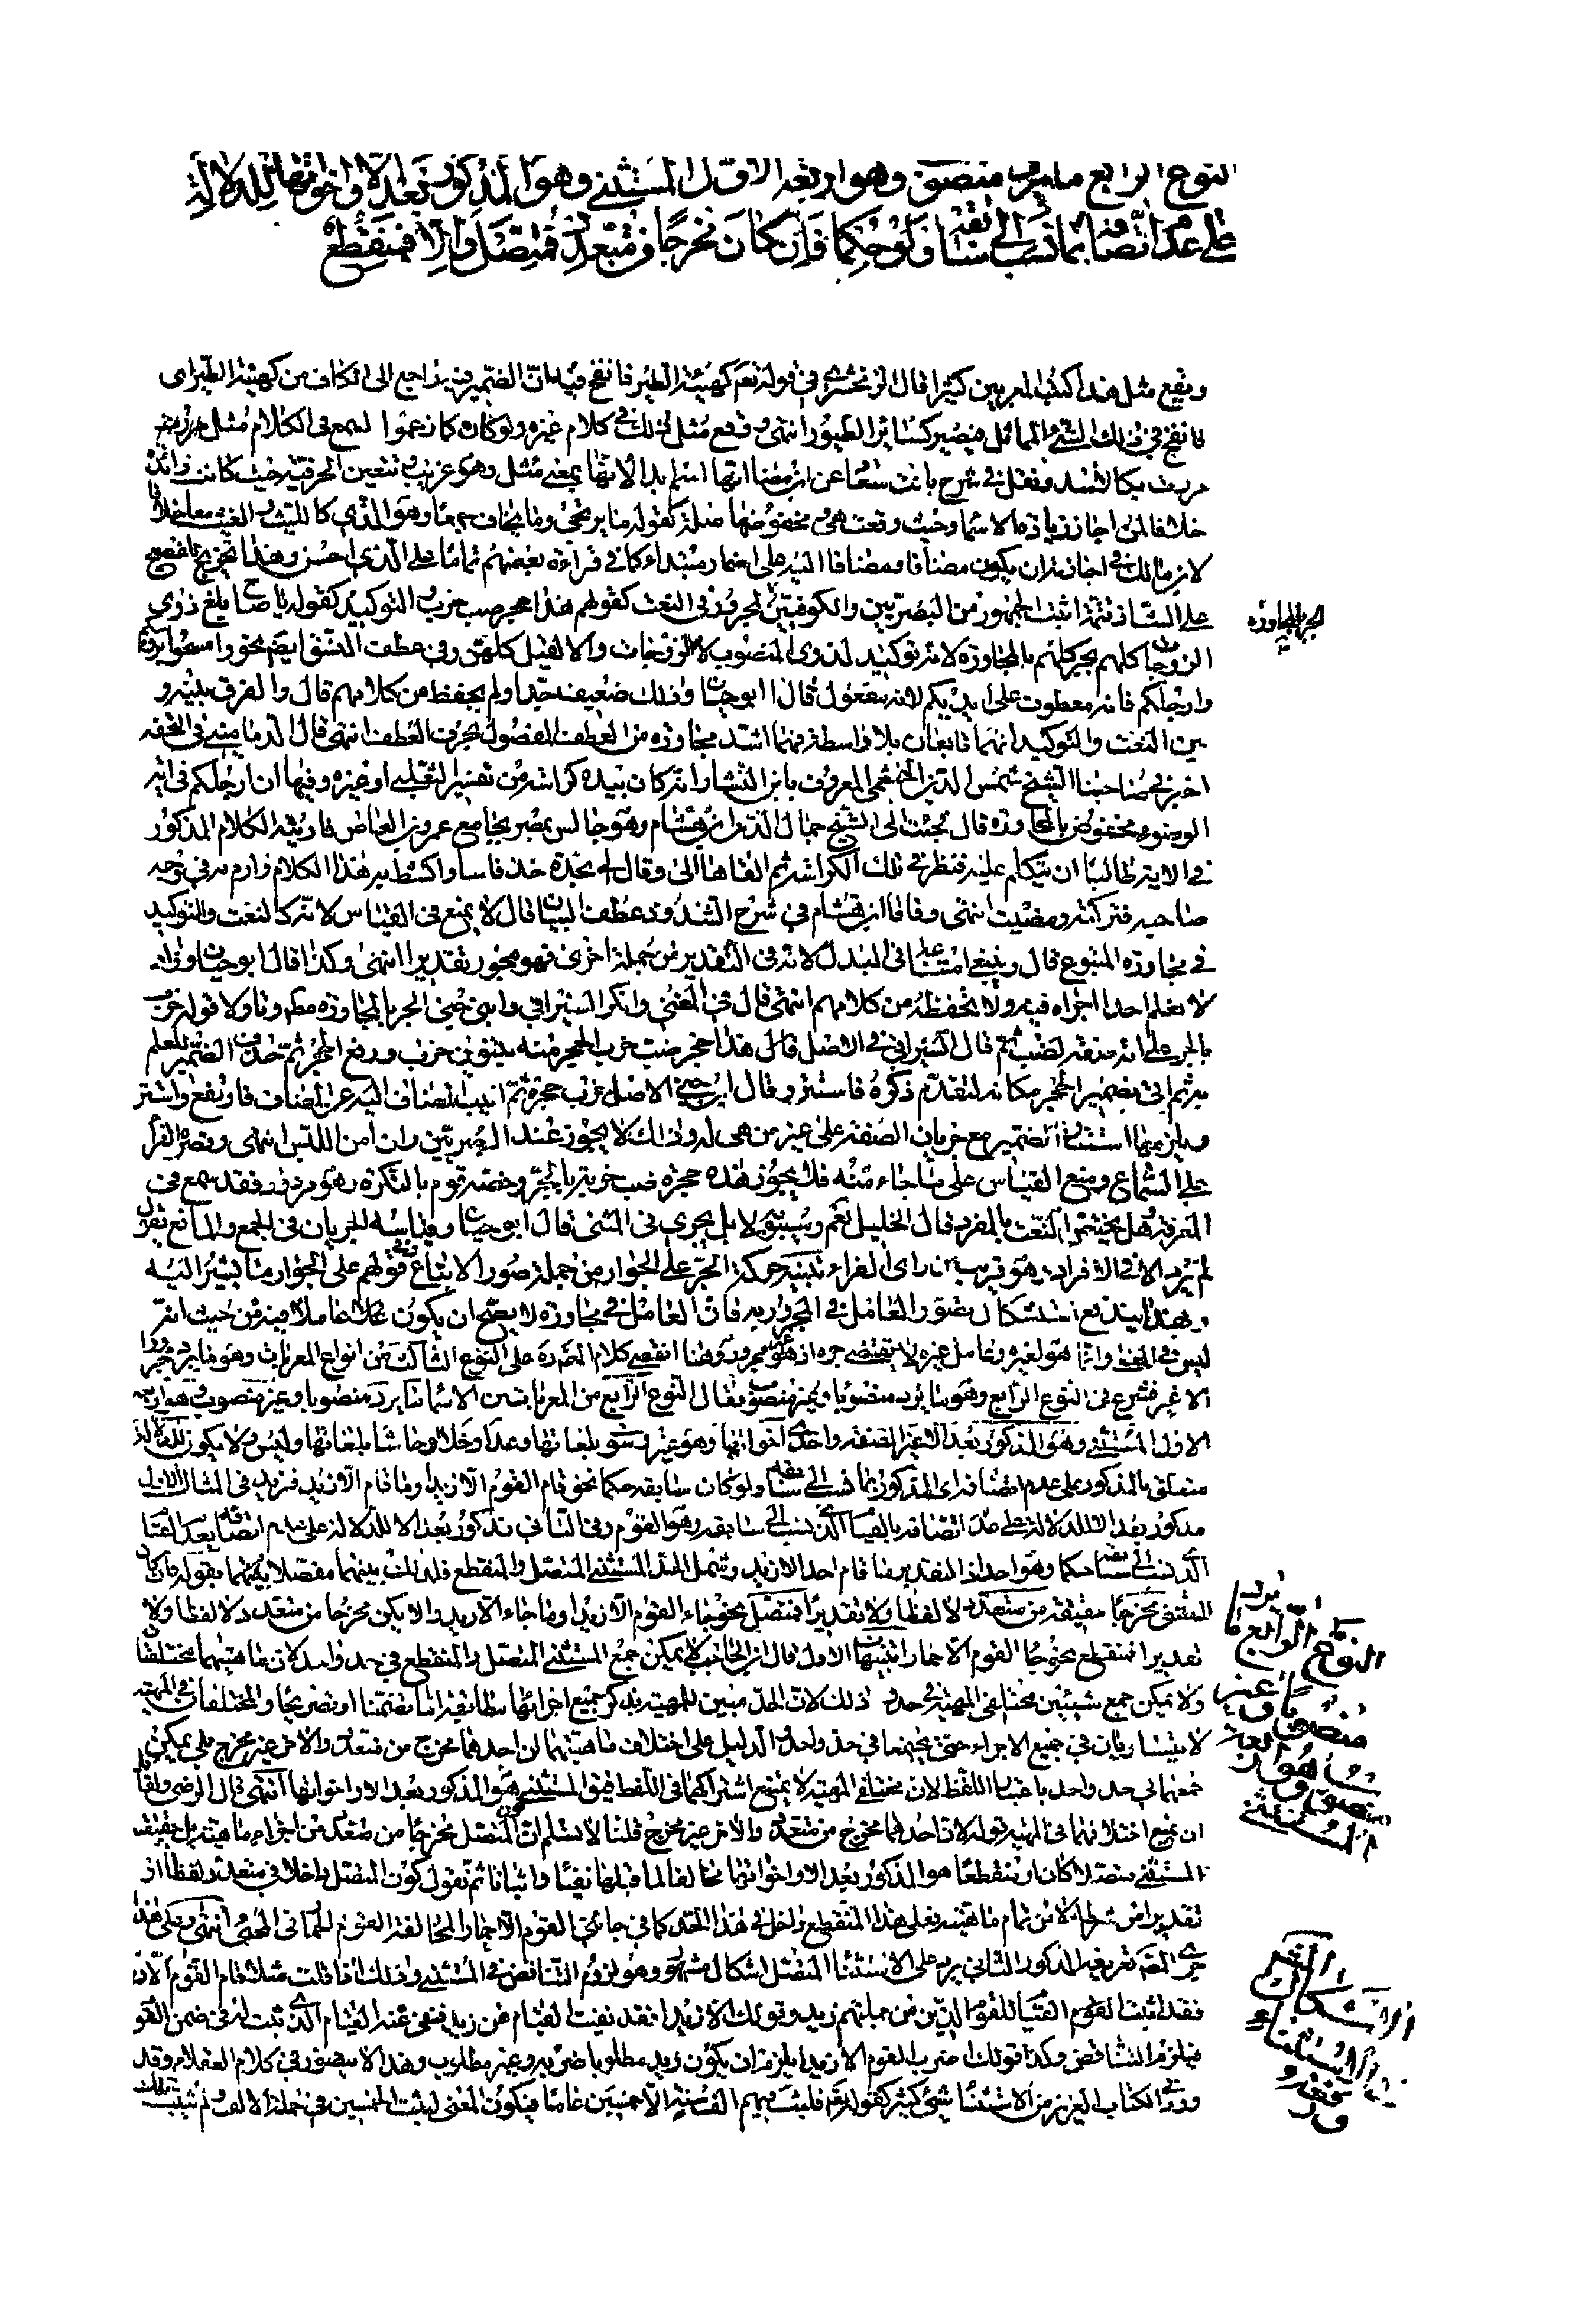 النوع الرابع ما يرد منصوبا وهو اربعة الاول المستثنى وهو المذكور بعد الا واخواتها للدلالة
على عدم اتصافه بما نسب الى سابقه ولو حكما فان كان مخرجا من متعدد فمتصل والا فمنقطع
ويقع مثل هذا في كتب المعربين كثيرا قال الزمخشري في قوله تعالى كهيئة الطير فانفخ فيه ان الضمير فيه راجع الى الكاف من كهيئة الطير اى
فانفخ في ذلك الشئ المماثل فيصير كسائر الطيور انتهى ووقع مثل ذلك في كلام غيره ولو كان كما زعموا لسمع في الكلام مثل مررت
بكالاسد ونقل في شرح بانت سعاد عن ابن مضا انها اسم ابدا لانها بمعنى مثل وهو غريب وتتعين الحرفية حيث كانت زائدة
خلافا لمن اجاز زيادة الاسماء وحيث وقعت هي ومخفوضها صلة كقوله ما يرتجى وما يخاف جمعا وهو الذي كالليث والغيث معا خلافا
لابن مالك في اجازته ان يكون مضافا ومضافا اليه على اضمار مبتداء كما في قراءة بعضهم تماما على الذي احسن وهذا تخريج للفصيح
على الشاذ تتمة اثبت الجمهور من البصريين والكوفيين المجرور في النعت كقولهم هذا جحر ضب خرب والتوكيد كقوله يا صاح بلغ ذوى
الزوجات كلهم بجر كلهم بالمجاورة لانه توكيد لذوى المنصوب لا الزوجات والا لقيل كلهن وفي عطف النسق ايضا نحو وامسحوا برؤسكم
وارجلكم فانه معطوف على ايديكم لانه مفعول قال ابو حيان وذلك ضعيف جدا ولم يحفظ من كلامهم قال والفرق بينه و
بين النعت والتوكيد انهما تابعان بلا واسطة فهما اشد مجاورة من العطف المفصول بحرف العطف انتهى قال الدماميني في التحفة
اخبرني صاحبنا الشيخ شمس الدين الخثعمي المعروف بابن النشار انه كان بيده كراسة من تفسير الثعلبي او غيره وفيها ان ارجلكم في اية
الوضوء مخفوض بالمجاورة قال فجئت الى الشيخ جمال الدين ابن هشام وهو جالس بمصر بجامع عمرو بن العاص فاريته الكلام المذكور
في الاية طالبا ان يتكلم عليه فنظر في تلك الكراسة ثم القاها الى وقال لي بحدة خذ فاسا واكشط به هذا الكلام وارم به في وجه
صاحبه فتركته ومضيت انتهى وفاقا ابن هشام في شرح الشذور عطف البيان قال لا يمتنع في القياس لانه كالنعت والتوكيد
في مجاورة المتبوع قال وينبغي امتناعه في البدل لانه في التقدير من جملة اخرى فهو محجوز تقديرا انتهى وكذا قال ابو حيان وزاد
لا نعلم احدا اجراه فيه ولا يحفظ من كلامهم انتهى قال في المغني وانكر السيرافي وابن جني الجر بالمجاورة مطلقا وتاولا قوله خرب
بالجر على انه صفة لضب ثم قال السيرافي في الاصل قال هذا جحر ضب خرب الجحر منه بتنوين خرب ورفع الجحر ثم حذف الضمير للعلم
به ثم اتى بضمير الجحر مكانه لتقدم ذكره فاستتر وقال ابن جني الاصل خرب جحره ثم انيب المضاف اليه عن المضاف فارتفع واستتر
ويلزمهما استتار الضمير مع جريان الصفة على غير من هي له وذلك لا يجوز عند البصريين وان امن اللبس انتهى وقصره الفراء
على السماع ومنع القياس على ما جاء منه فلا يجوز هذه جحرة ضب خربة بالجر وخصه قوم بالنكرة وهو مردود فقد سمع في
المعرفة وهل يختص النعت بالمفرد قال الخليل نعم وسيبويه لا بل يجري في المثنى قال ابو حيان وقياسه الجريان في الجمع والمانع يقول
لم يرد الا في الافراد
وبهذا يندفع استشكال تصور العامل في المجرور به فان العامل في مجاورة لا يصح ان يكون عاملا فيه من حيث انه
الا غير فشرع في النوع الرابع وهو ما يرد منصوبا وغير منصوب فقال النوع الرابع من المعربات من الاسماء ما يرد منصوبا وغير منصوب وهو اربعة
الاول المستثنى وهو المذكور بعد الا غير الصفة واحدى اخواتها وهو غير وسوى بلغاتها وعدا وخلا وحاشا بلغاتها وليس ولا يكون للدلالة
متعلق بالمذكور على عدم اتصافه اى المذكور بما نسب الى سابقه ولو كان سابقه حكما نحو قام القوم الا زيدا وما قام الا زيد فزيد في المثال الاول
مذكور بعد الا للدلالة على عدم اتصافه بالقيام الذي نسب الى سابقه وهو القوم وفي الثاني مذكور بعد الا للدلالة على عدم اتصافه بعدم القيام
الذي نسب الى سابقه حكما وهو احد اذ التقدير ما قام احد الا زيد وشمل الحد المستثنى المتصل والمنقطع فلذلك بينهما مفصلا بينهما بقوله فان كان
المستثنى مخرجا حقيقة من متعدد لا لفظا ولا تقديرا فمتصل نحو جاء القوم الا زيدا وما جاء الا زيد والا يكن مخرجا من متعدد لا لفظا ولا
تقديرا فمنقطع نحو جاء القوم الا حمارا تنبيهات الاول قال ابن الحاجب لا يمكن جمع المستثنى المتصل والمنقطع في حد واحد لان ماهيتهما مختلفتان
ولا يمكن جمع شيئين مختلفي المهية في حد وذلك لان الحد مبين للمهية بذكر جميع اجزائها مطابقة او تضمنا او تصريحا والمختلفان في المهية
لا يتساويان في جميع الاجزاء حتى يجتمعا في حد واحد والدليل على اختلاف ماهيتهما ان احدهما مخرج من متعدد والاخر غير مخرج بلى يمكن
جمعهما في حد واحد باعتبار اللفظ لان مختلفي المهية لا يمتنع اشتراكهما في اللفظ فيقال المستثنى هو المذكور بعد الا واخواتها انتهى قال الرضي ولقائل
ان يمنع اختلافهما في المهية قوله لان احدهما مخرج من متعدد والاخر غير مخرج قلنا لا نسلم ان كون المتصل مخرجا من متعدد من اجزاء ماهيته بل حقيقة
المستثنى متصلا كان او منقطعا هو المذكور بعد الا واخواتها مخالفا لما قبلها نفيا واثباتا ثم نقول كون المتصل داخلا في متعدد لفظا او
تقديرا من شرطه لا من تمام ماهيته فعلى هذا المنقطع داخل في هذا الحد كما في جاءني القوم الا حمارا لمخالفة القوم الحمار في المجئ انتهى وعلى هذا
جرى المص تعريفه المذكور الثاني يرد على الاستثناء المتصل اشكال مشهور وهو لزوم التناقض في المستثنى وذلك اذا قلت مثلا قام القوم الا زيدا
فقد اثبت القيام للقوم الذين من جملتهم زيد وقولك الا زيدا فقد نفيت القيام عن زيد فنفي عنه القيام الذي ثبت له في ضمن القوم
فيلزم التناقض وكذا قولك اضرب القوم الا زيدا يلزم ان يكون زيد مطلوبا ضربه وغير مطلوب وهذا لا يتصور في كلام العقلاء وقد
ورد في الكتاب العزيز من الاستثناء شئ كثير كقوله تعالى فلبث فيهم الف سنة الا خمسين عاما فيكون المعنى لبث الخمسين في جملة الالف ولم يلبث تلك
الجر بالمجاورة
النوع الرابع ما يرد
منصوبا وغير
منصوب وهو اربعة
المستثنى
الاشكال